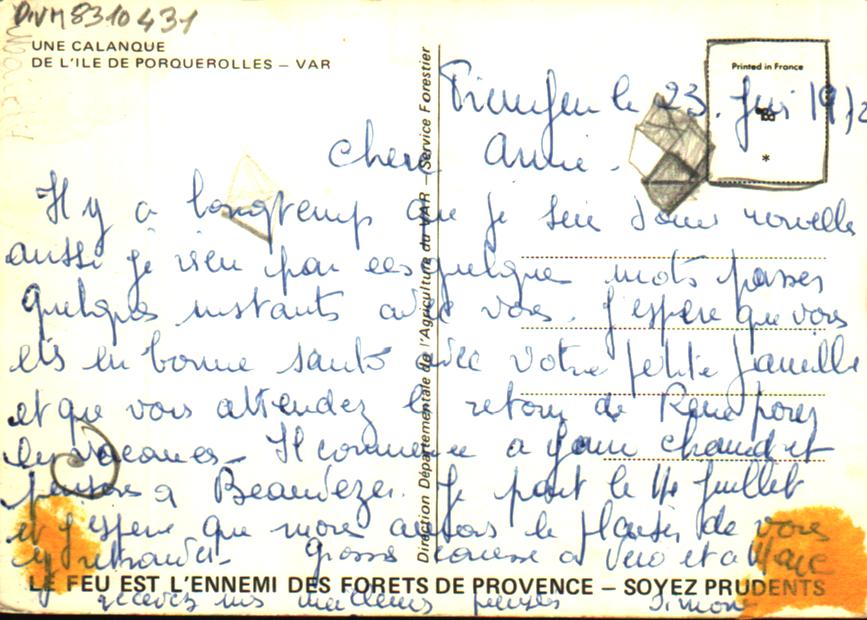 DIVM8310431
UNE CALANQUE
DE L'ILE DE PORQUEROLLES – VAR
Direction Départementale de l'Agriculture du VAR – Service Forestier
Printed in France
*
le 23. Jui 1972
chere Annie.
Il y a longtemp que je suis sans nouvelle
aussi je vien par ces quelques mots passes
quelques instants avec vous. J'espere que vous
ets en bonne santé avec votre petite famille
et que vous attendez le retour de Rene pour
les vacances – Il commence a faire chaud et
pensons a Je part le 11 Juillet
et j'espere que nous aurons le plaisir de vous
y retrouver – Grosse carresse a Vero et a Marc
LE FEU EST L'ENNEMI DES FORETS DE PROVENCE – SOYEZ PRUDENTS
recevez nos meilleurs pensées Simone